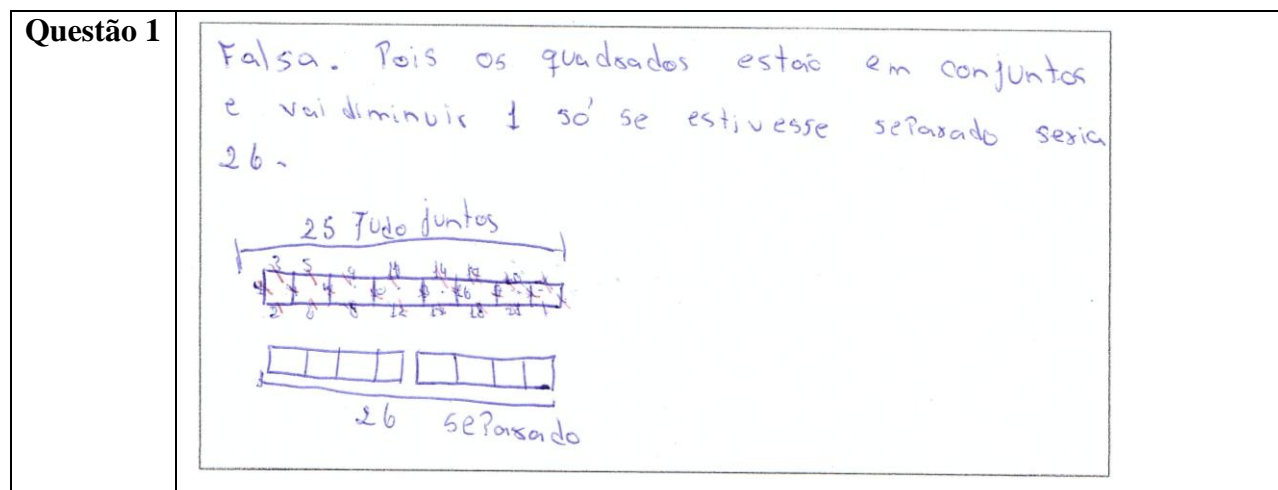 Questão 1
Falsa. Pois os quadrados estão em conjuntos
e vai diminuir 1 só se estivesse separado seria
26.
25 Tudo juntos
3 5 11 14
2 6 8 12 18
26 separado